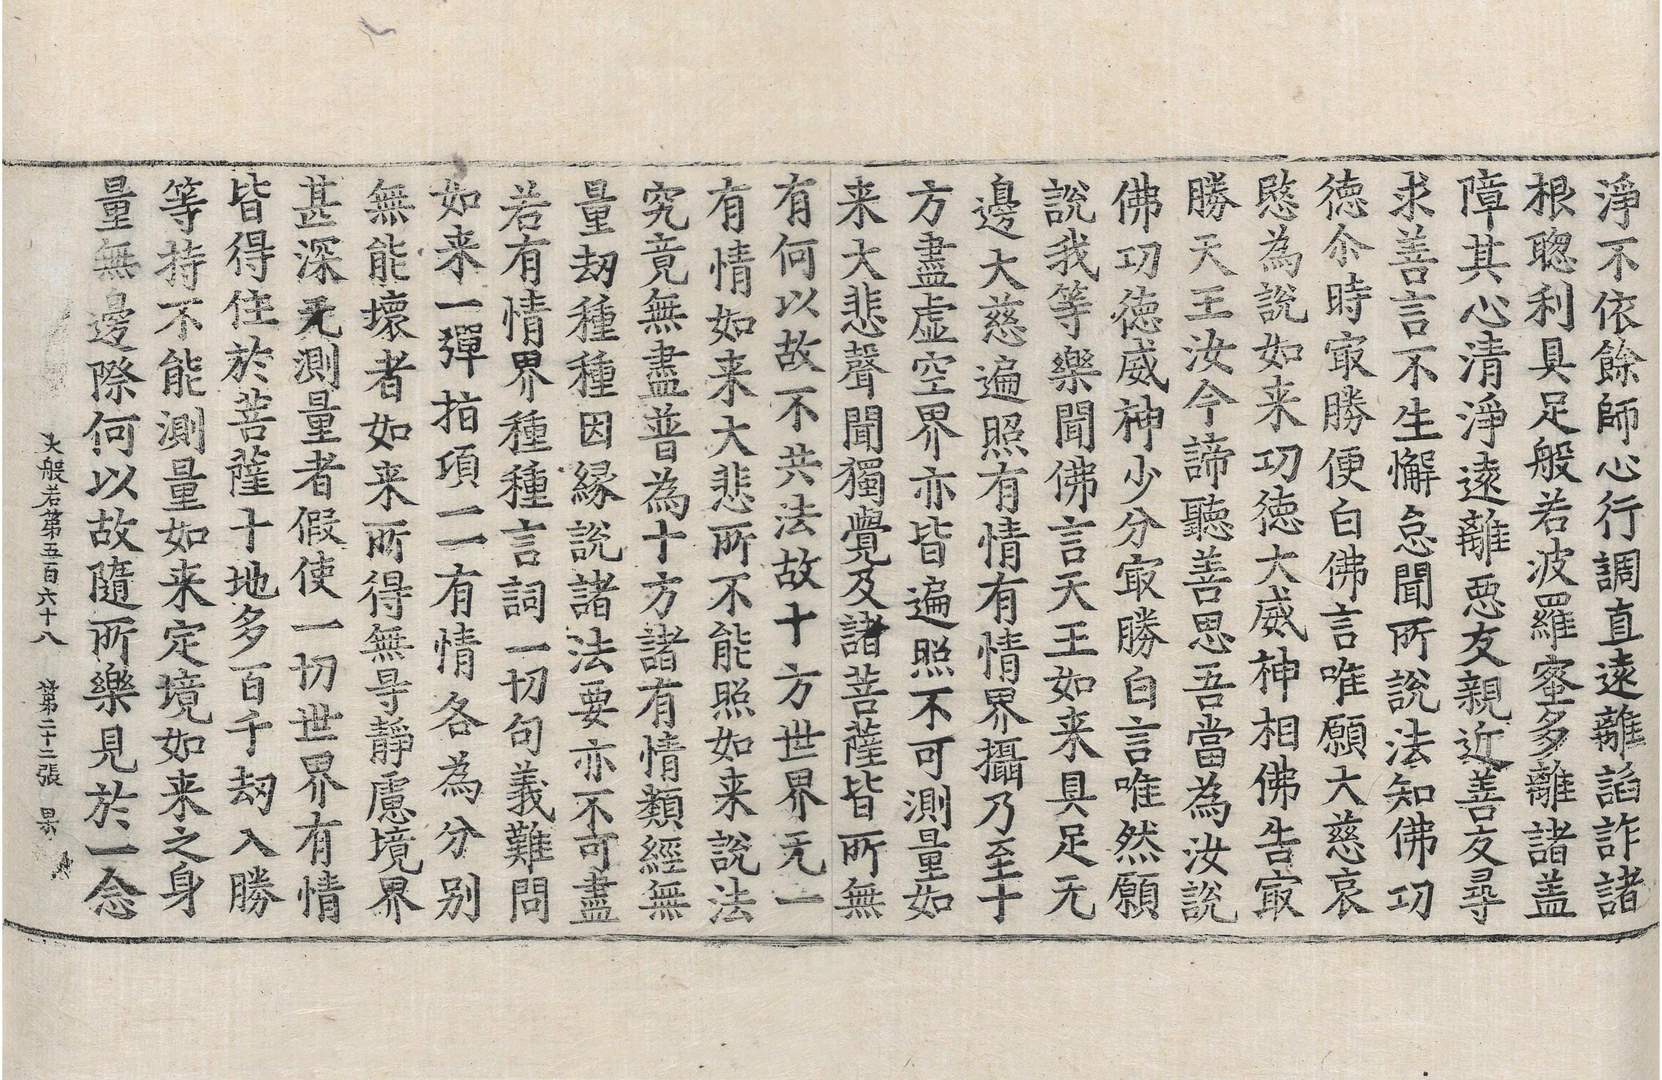 淨不依餘師心行調直遠離諂詐諸
根聦利具足般若波羅蜜多離諸盖
障其心清淨遠離惡友親近善友尋
求善言不生懈怠聞所說法知佛功
德尒時㝡勝便白佛言唯願大慈哀
愍為說如来功德大威神相佛告㝡
勝天王汝今諦聽善思吾當為汝說
佛功德威神少分㝡勝白言唯然願
說我等樂聞佛言天王如来具足无
邊大慈遍照有情有情界攝乃至十
方盡虛空界亦皆遍照不可測量如
来大悲聲聞獨覺及諸菩薩皆所無
有何以故不共法故十方世界无一
有情如来大悲所不能照如来說法
究竟無盡普為十方諸有情類經無
量劫種種因縁說諸法要亦不可盡
若有情界種種言詞一切句義難問
如来一彈指頃一一有情各為分别
無能壞者如来所得無㝵靜慮境界
甚深无測量者假使一切世界有情
皆得住於菩薩十地多百千劫入勝
等持不能測量如来定境如来之身
量無邊際何以故隨所樂見於一念
大般若第五百六十八 第二十二張 昃